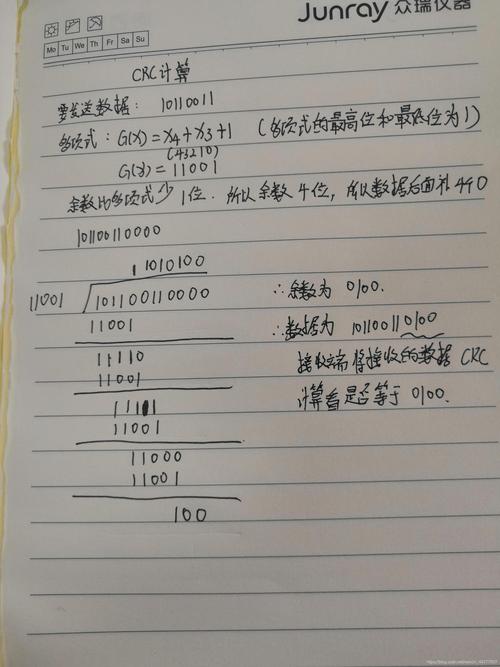 Junray 众瑞仪器
Mo Tu We Th Fr Sa Su
CRC计算
要发送数据: 10110011
多项式: G(X)=X4+X3+1 (多项式的最高位和最低位为1)
(43210)
G(X)=11001
余数比多项式少1位. 所以余数4位, 所以数据后面补4个0
101100110000
11010100
11001 101100110000
11001
11110
11001
11111
11001
11000
11001
100
∴余数为 0100.
∴数据为 101100110100
接收端将接收的数据CRC
计算看是否等于0100.